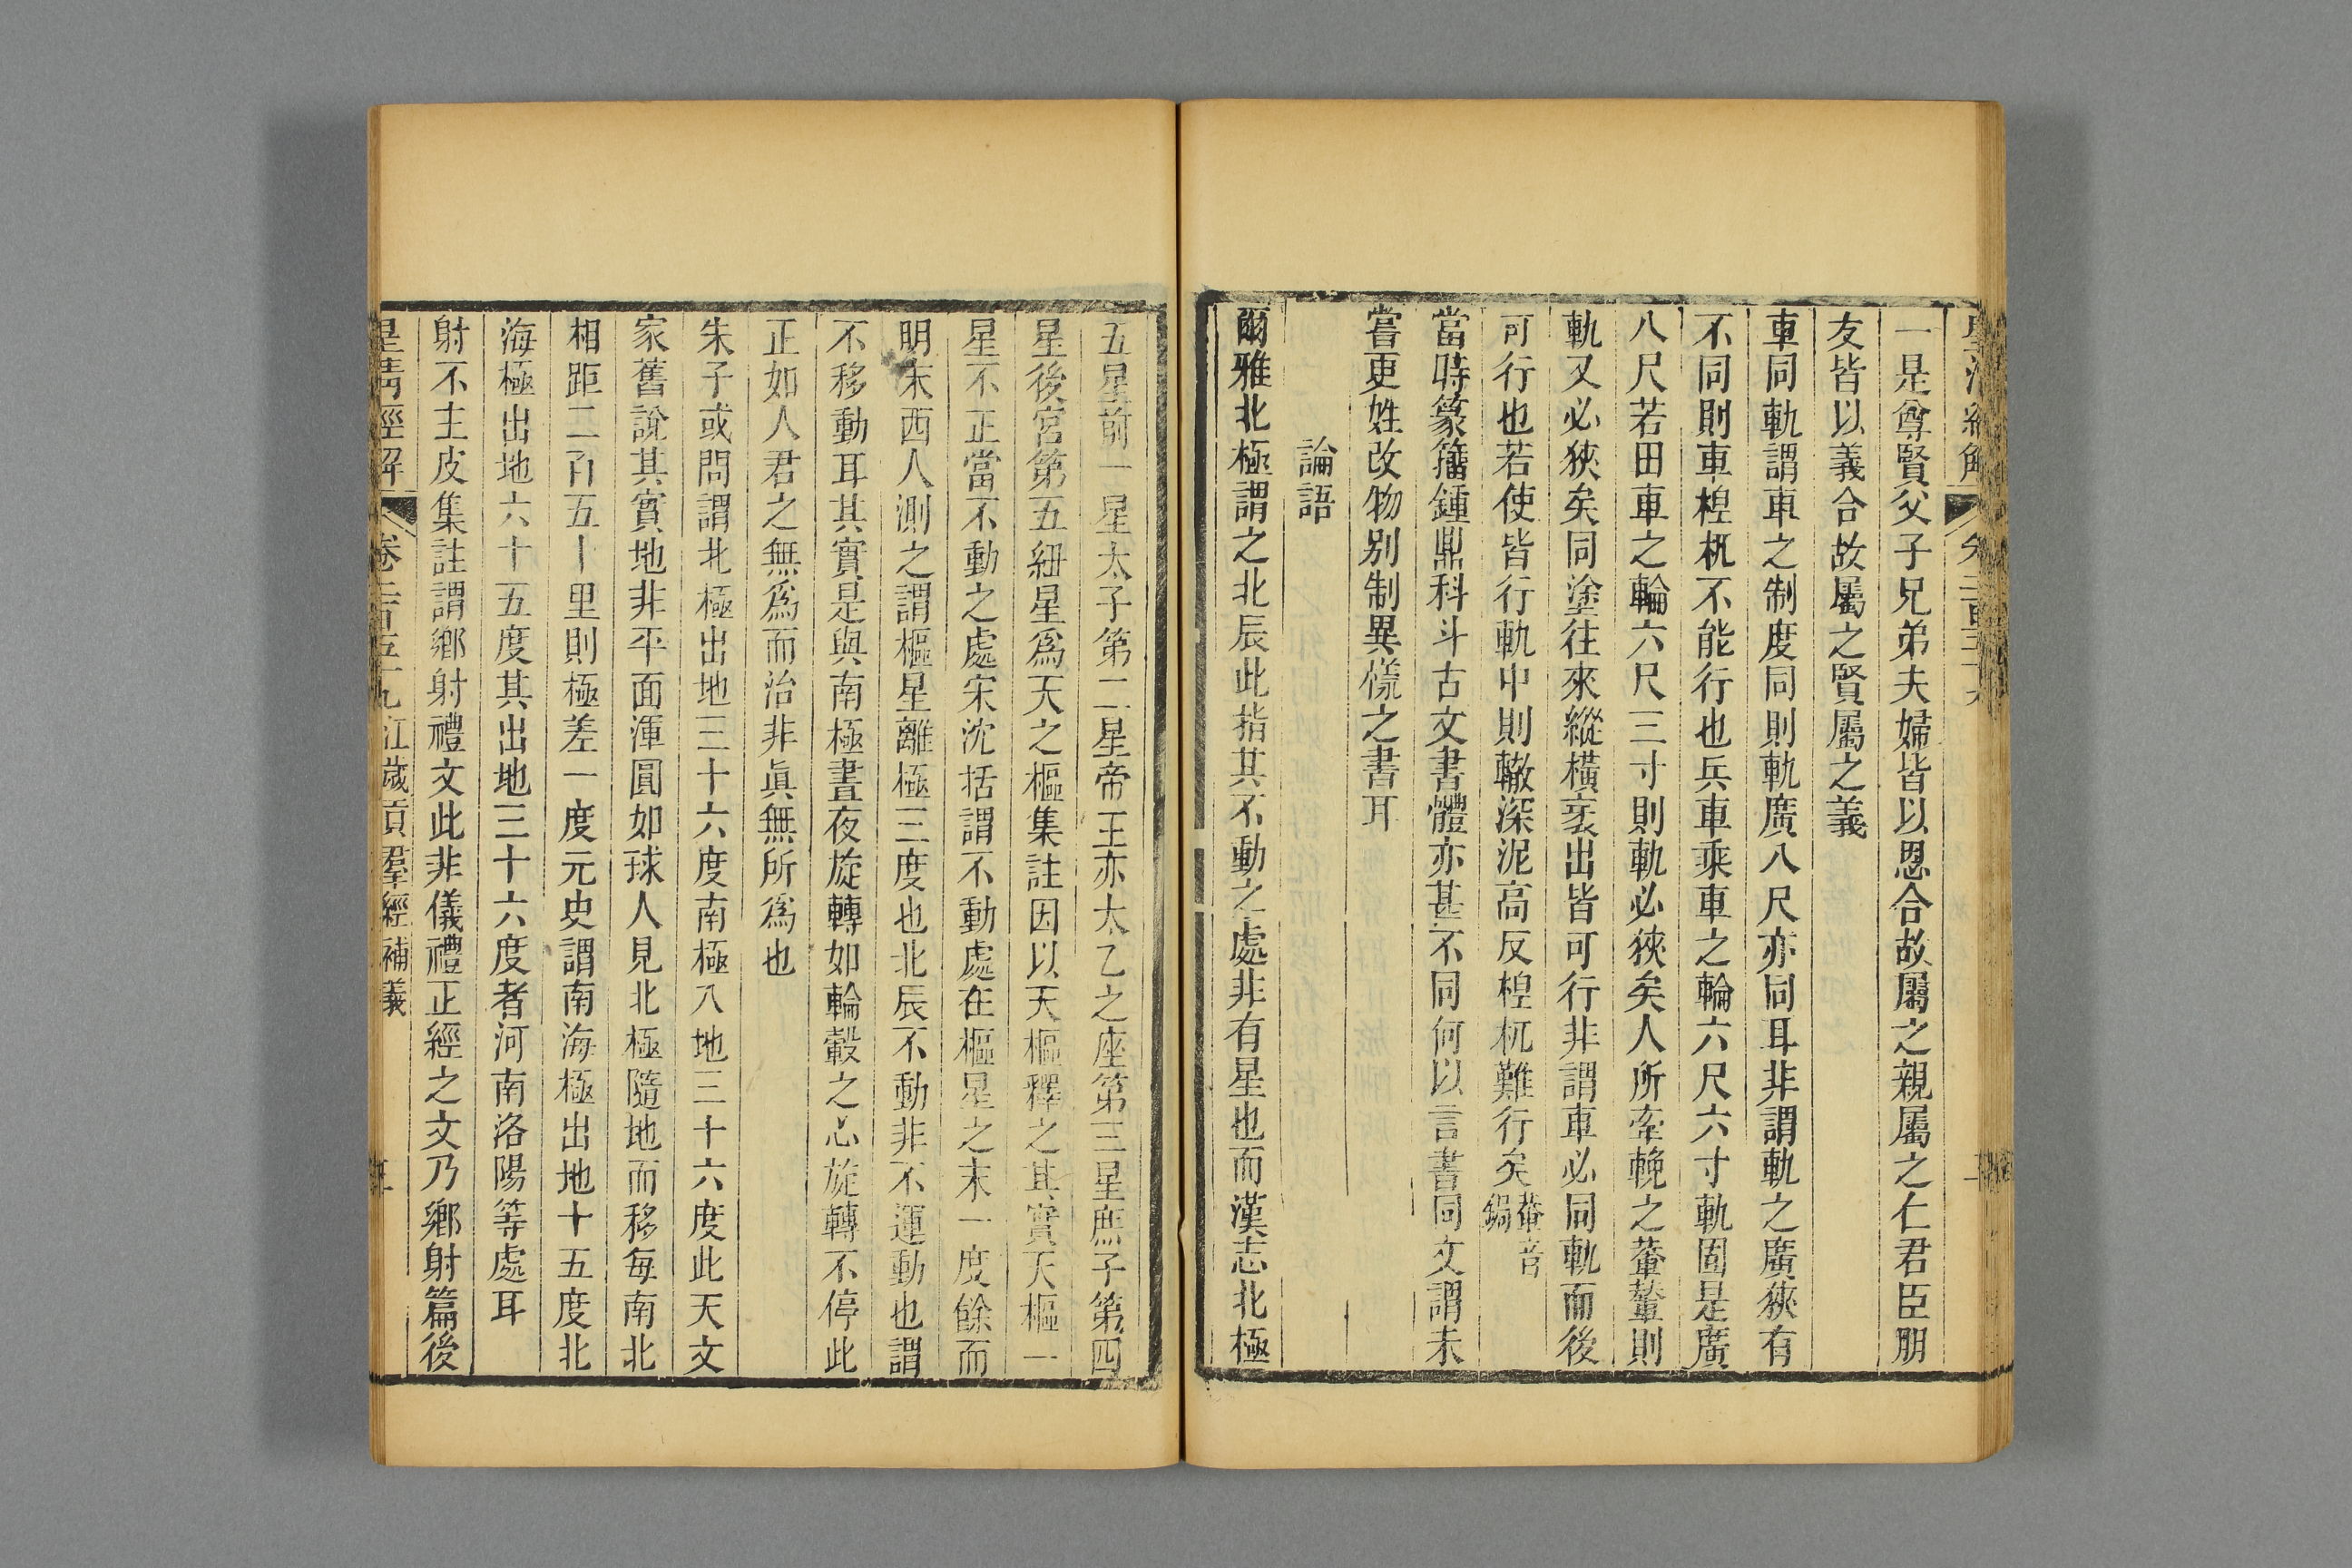 一是尊賢父子兄弟夫婦皆以恩合故屬之親屬之仁君臣朋
友皆以義合故屬之賢屬之義
車同軌謂車之制度同則軌廣八尺亦同耳非謂軌之廣狹有
不同則車楻杌不能行也兵車乘車之輪六尺六寸軌固是廣
八尺若田車之輪六尺三寸則軌必狹矣人所牽輓之輂輦則
軌又必狹矣同塗往來縱橫衺出皆可行非謂車必同軌而後
可行也若使皆行軌中則轍深泥高反楻杌難行矣輂音鋦
當時篆籀鍾鼎科斗古文書體亦甚不同何以言書同文謂未
嘗更姓改物別制異㨾之書耳
論語
爾雅北極謂之北辰此指其不動之處非有星也而漢志北極
五星前一星太子第二星帝王亦太乙之座第三星庶子第四
星後宮第五紐星爲天之樞集註因以天樞釋之其實天樞一
星不正當不動之處宋沈括謂不動處在樞星之末一度餘而
明末西人測之謂樞星離極三度也北辰不動非不運動也謂
不移動耳其實是與南極晝夜旋轉如輪轂之心旋轉不停此
正如人君之無爲而治非眞無所爲也
朱子或問謂北極出地三十六度南極入地三十六度此天文
家舊說其實地非平面渾圓如球人見北極隨地而移每南北
相距二百五十里則極差一度元史謂南海極出地十五度北
海極出地六十五度其出地三十六度者河南洛陽等處耳
射不主皮集註謂鄉射禮文此非儀禮正經之文乃鄉射篇後
皇清經解 卷二百五十九江歲貢羣經補義